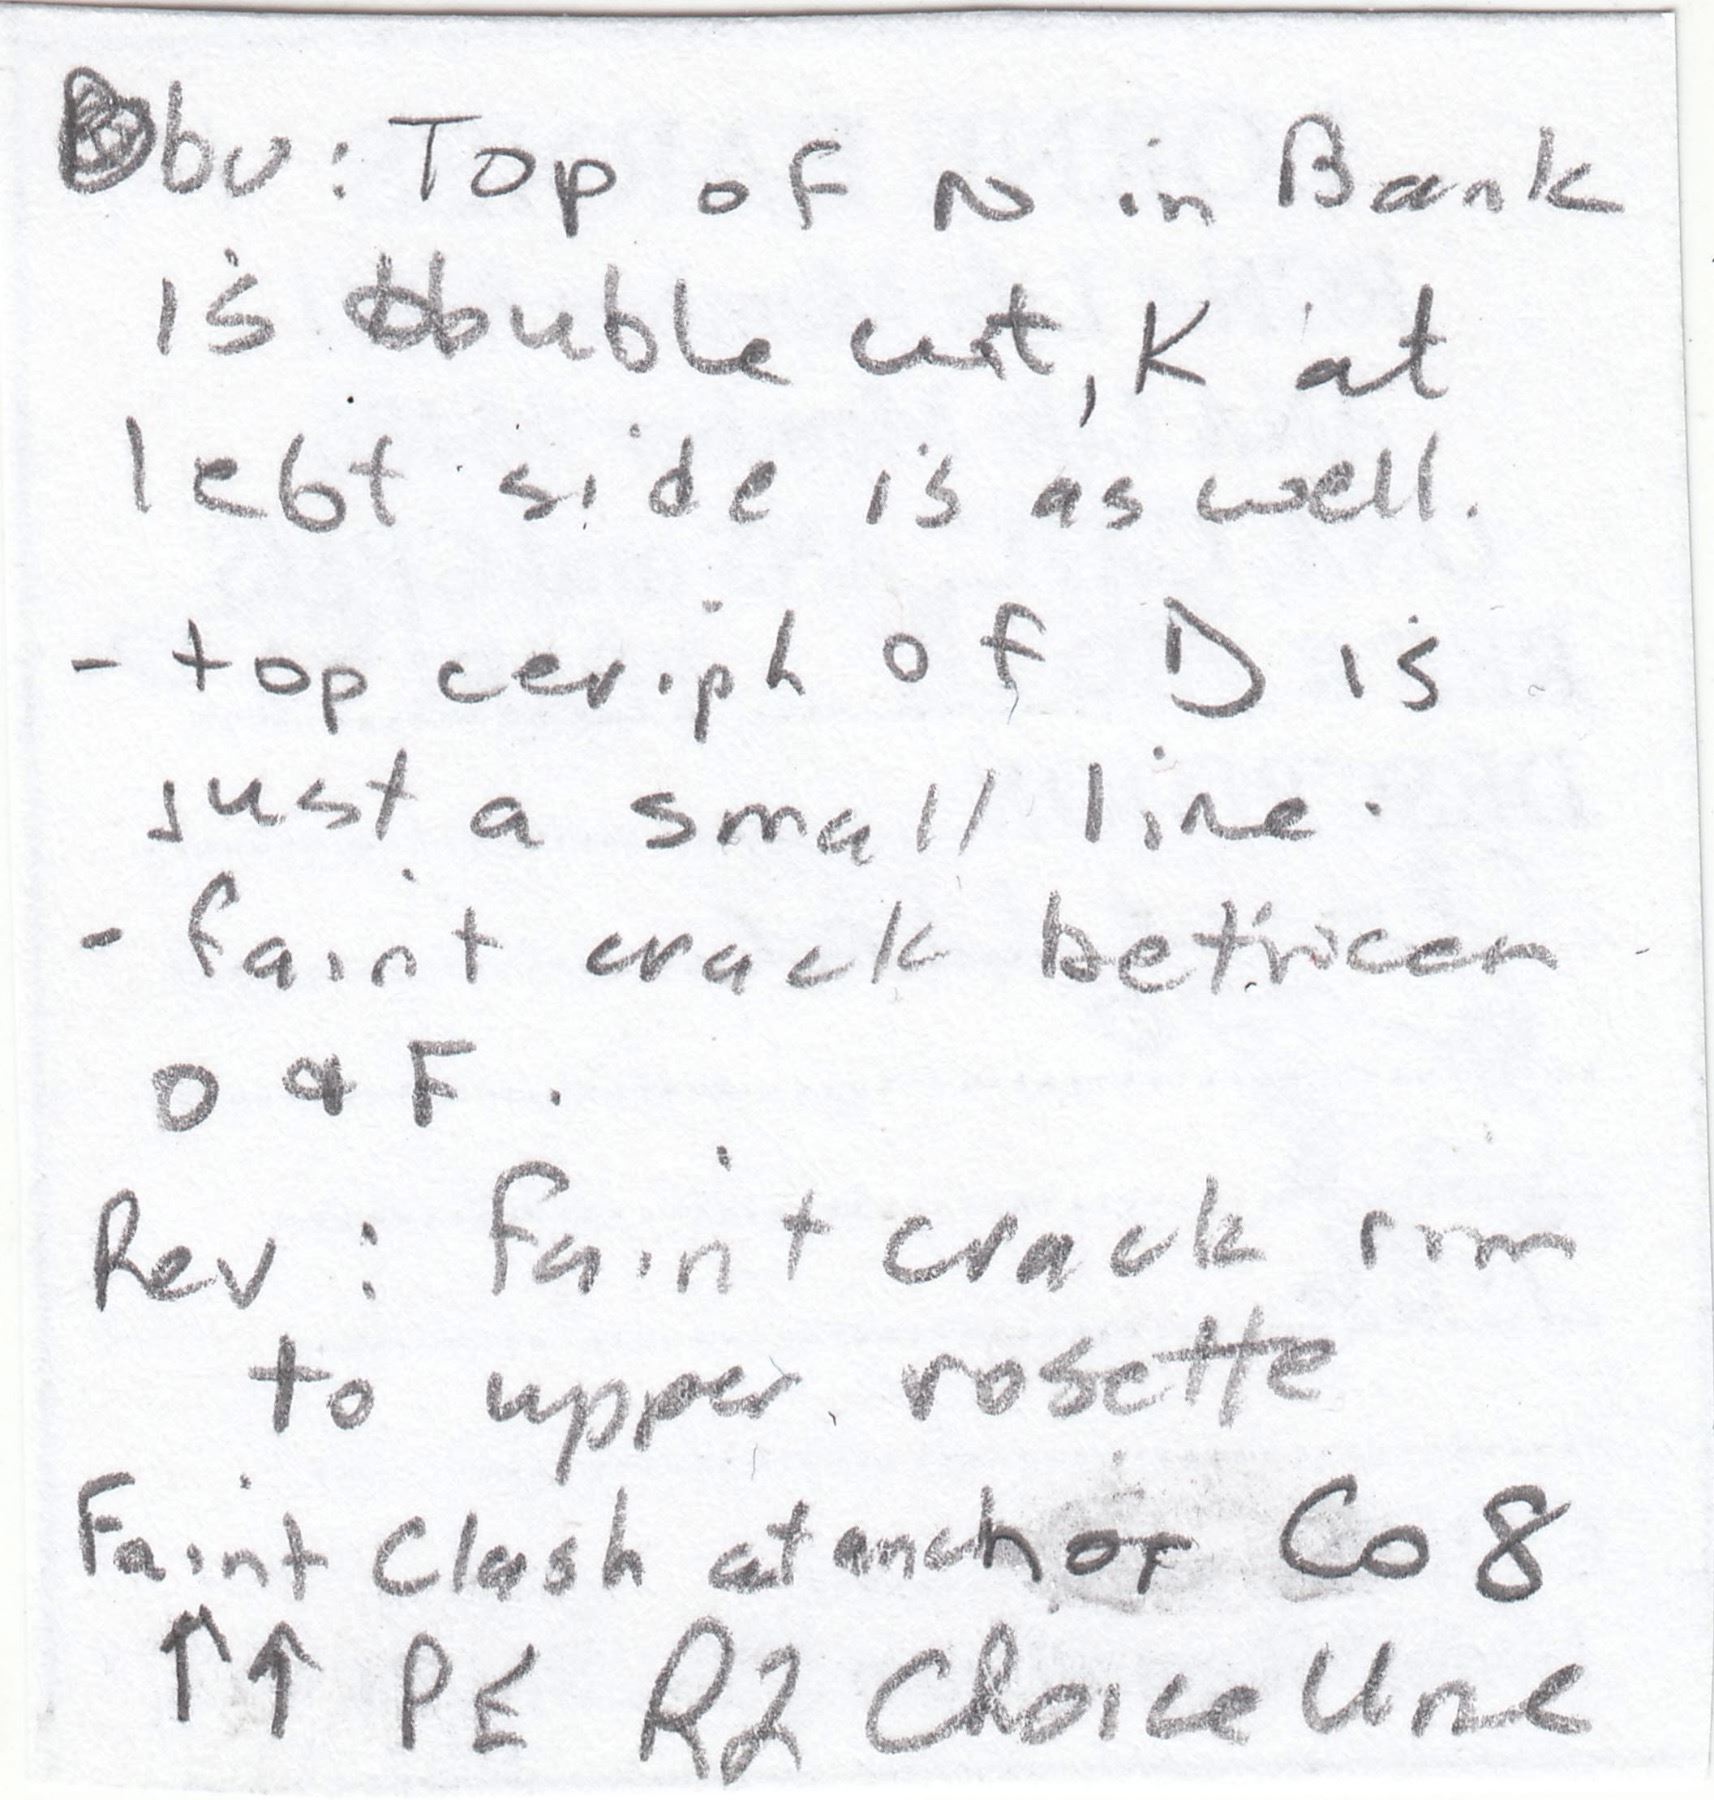 Obv: Top of N in Bank
is double cut, K at
left side is as well.
- top ceriph of D is
just a small line.
- faint crack between
O & F.
Rev: faint crack rim
to upper rosette
Faint Clash at anchor Co 8
↑↑ PE R2 Choice Unc